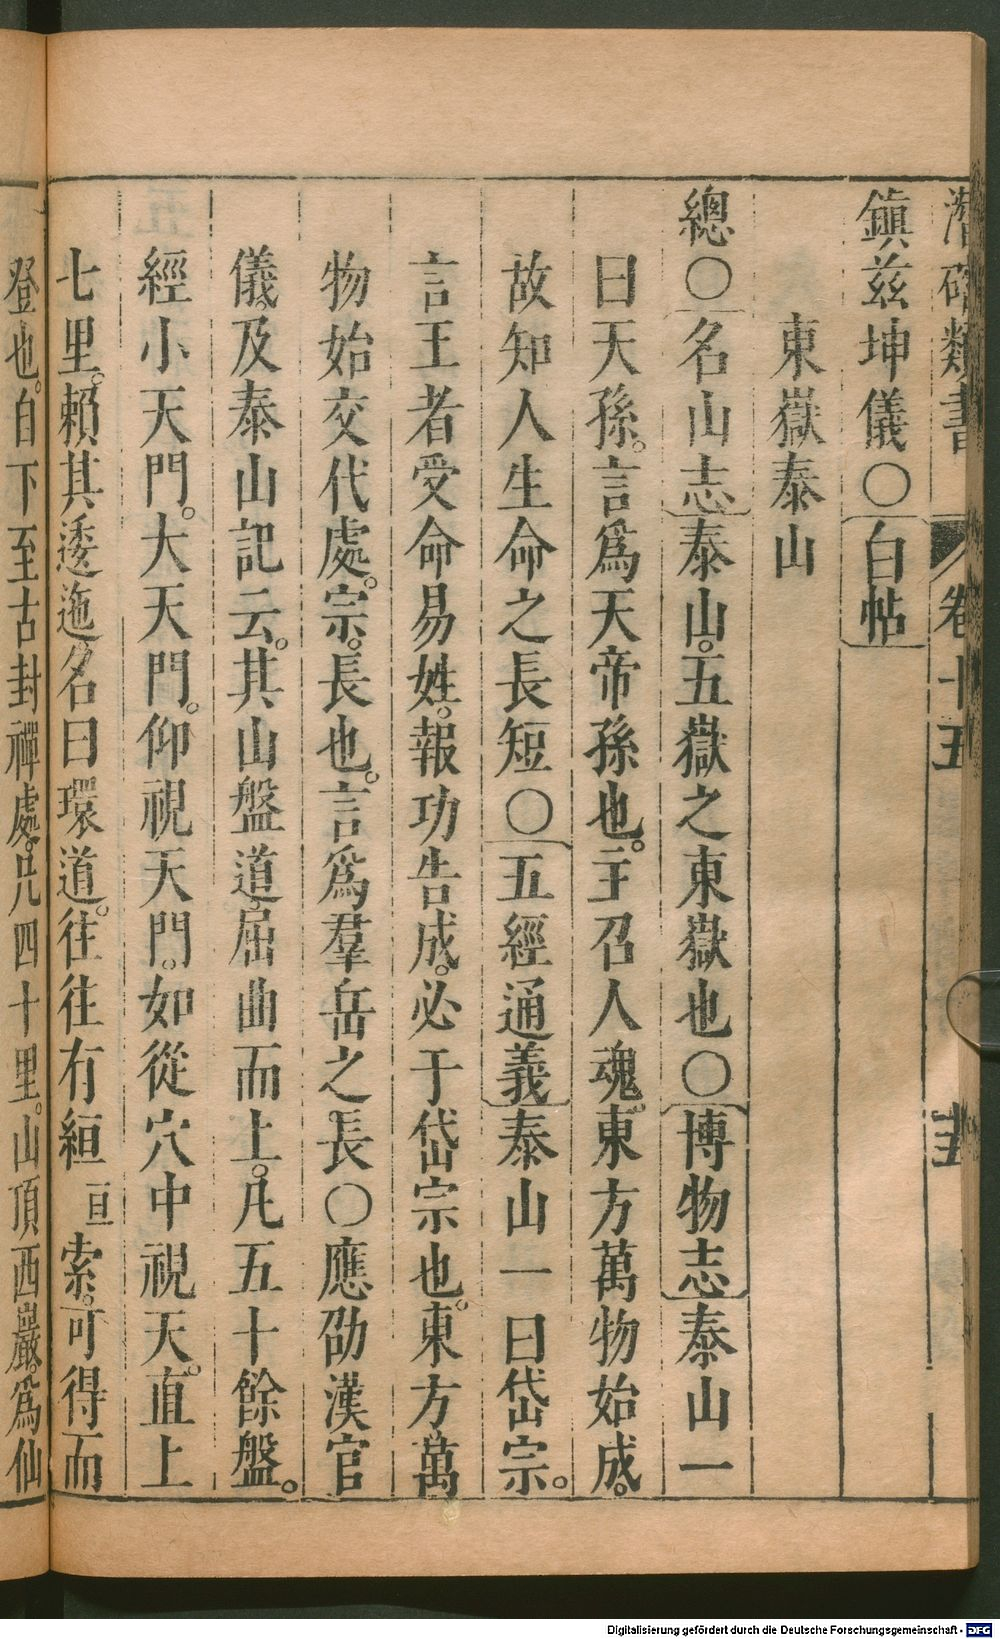 潛確類書 卷十五 十五
鎮兹坤儀○白帖
東嶽泰山
總○名山志泰山。五嶽之東嶽也○博物志泰山一
曰天孫。言爲天帝孫也。主召人魂。東方萬物始成。
故知人生命之長短○五經通義泰山一曰岱宗。
言王者受命易姓。報功告成。必于岱宗也。東方萬
物始交代處。宗。長也。言爲羣岳之長○應劭漢官
儀及泰山記云。其山盤道屈曲而上。凡五十餘盤。
經小天門。大天門。仰視天門。如從穴中視天。直上
七里。賴其逶迤名曰環道。往往有絙亘索。可得而
登也。自下至古封禪處。凡四十里。山頂西巖。爲仙
Digitalisierung gefördert durch die Deutsche Forschungsgemeinschaft - DFG